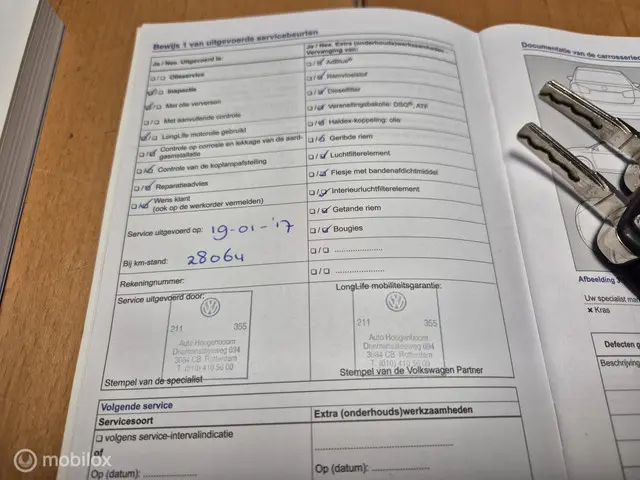 Bewijs 1 van uitgevoerde servicebeurten
Ja / Nee. Uitgevoerd is:
Olieservice
Inspectie
Met olie verversen
Met aanvullende controle
LongLife motorolie gebruikt
Controle op corrosie en lekkage van de aard-
gasinstallatie
Controle van de koplampafstelling
Reparatieadvies
Wens klant
(ook op de werkorder vermelden)
Service uitgevoerd op: 19-01-'17
Bij km-stand: 28064
Rekeningnummer:
Service uitgevoerd door:
211 355
Auto Hoogenboom
3084 CB Rotterdam
T. (010) 410 56 00
Stempel van de specialist
Ja / Nee. Extra (onderhouds)werkzaamheden
Vervanging van:
AdBlue®
Remvloeistof
Dieselfilter
Versnellingsbakolie: DSG®, ATF
Haldex-koppeling: olie
Geribde riem
Luchtfilterelement
Flesje met bandenafdichtmiddel
Interieurluchtfilterelement
Getande riem
Bougies
LongLife mobiliteitsgarantie:
211 355
Auto Hoogenboom
3084 CB Rotterdam
T. (010) 410 56 00
Stempel van de Volkswagen Partner
Volgende service
Servicesoort
volgens service-intervalindicatie
of
Op (datum):
Extra (onderhouds)werkzaamheden
Op (datum):
Documentatie van de carrosserie
Afbeelding
Uw specialist
× Kras
Defecten
Beschrijving
mobilox